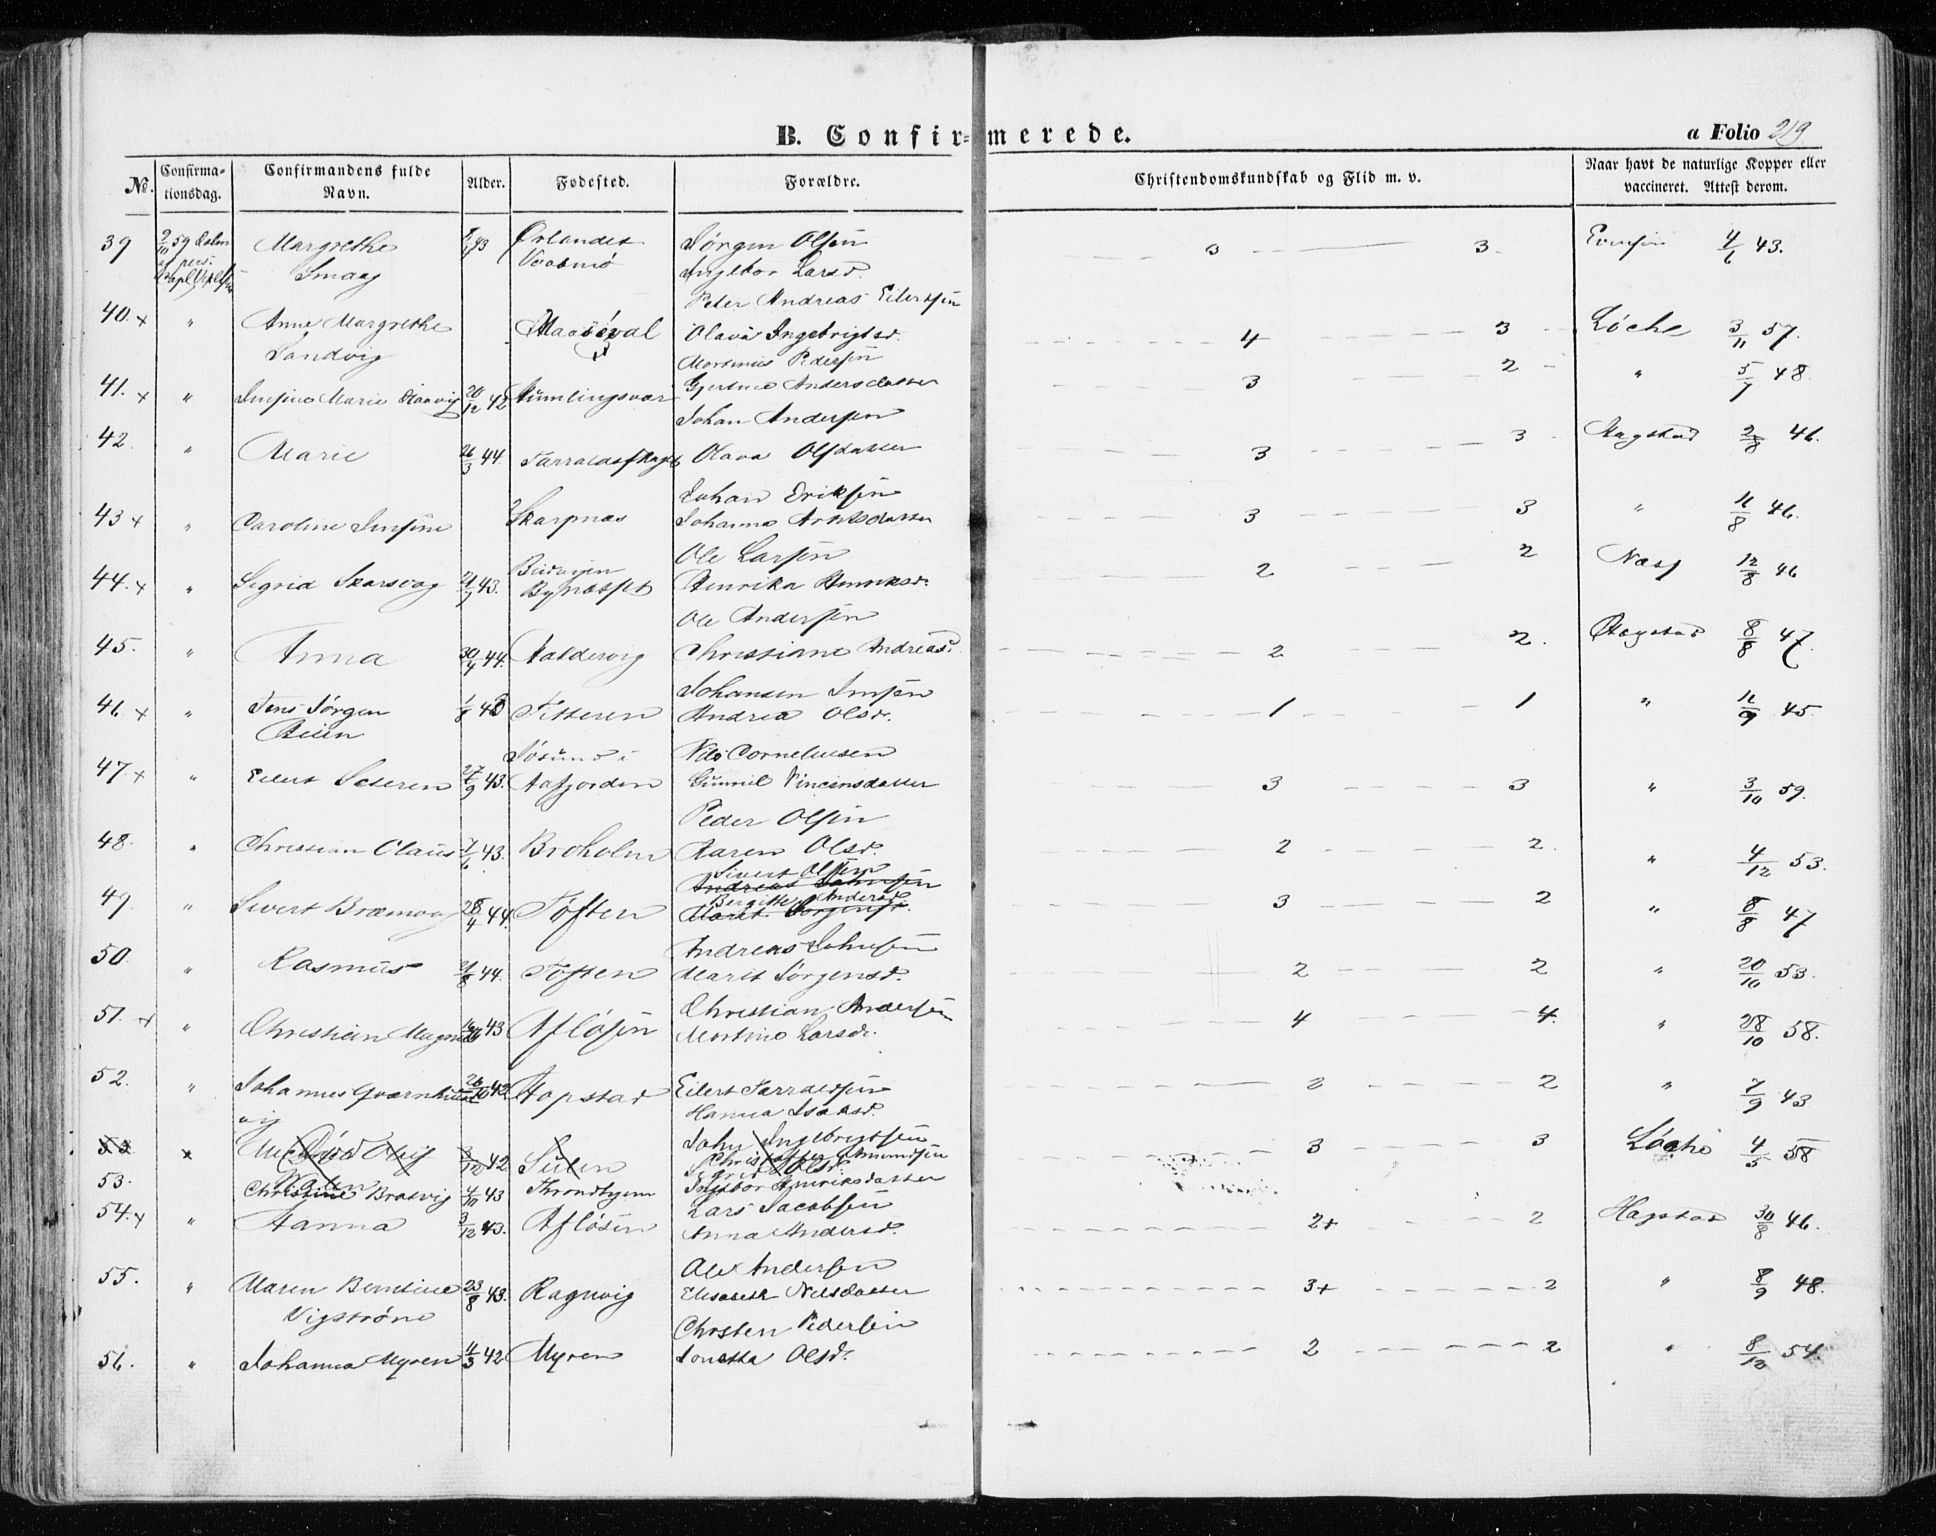 B. Confir= merede.
a Folio 219
No. Confirma=tionsdag. Confirmandens fulde Navn. Alder. Fødested. Forældre. Christendomskundskab og Flid m. v. Naar havt de naturlige Kopper eller vaccineret. Attest derom.
39 2/10 59 Margrethe 43 Ørlandet Jørgen Olsen 3 3 4/6 43.
Smaag Ingebor Larsd.
Peter Andreas Eilertsen
40. x " Anne Margrethe Olava Ingebrigtsd. 4 3 Løche 3/11 57.
Sandvig
Mortinus Pedersen
41. x " Marie 20/12 42 Gjertine Andersdatter 3 2 " 5/7 48.
Johan Andersen
42. " Marie 26/3 44. Olava Olsdatter 3 3 Hagstad 2/8 46.
Johan Eriksen
43 x " Caroline Jensine Skarpnæs Johanna 3 3 " 11/8 46.
Ole Larsen
44. x " Sigrid Skarsvag 43. Bynæsset Henrika Henriksd. 2 2 Næss 12/8 46
Ole Andersen
45. " Anna 30/4 44. Haldervig Christiane Andreasd. 2 2. Hagstad 8/8 47.
Johansen Jensen
46 x " Jens Jørgen 1/8 43 Titteren Andrea Olsd. 1 1 " 11/9 45.
Søsund i Nils Corneliusen
47 x " Eilert Seteren 27/9 43. Aafjorden Gunnil Vincensdatter 3 3 " 3/10 59.
Peder Olsen
48. " Christian Olaus 7/6 43. Broholm Karen Olsd. 2 2. " 4/12 53.
Sivert Olsen
Andreas Johnsen
49 " Sivert Bræmvag 28/4 44. Toften Bergitte Andersd. 3 2 " 8/8 47
Marit Jørgensd.
Andreas Johnsen
50. " Rasmus 44. Toften Marit Jørgensd. 2 2 " 20/10 53.
Christian Andersen
51. x " Christian Magnus 43 Afløsen Martine Larsd. 4 4. " 28/10 58.
52. " Johannes 26/10 42 Hopstad Eilert Tarraldsen 2 2 " 7/9 43
vig Hanna Isaksd.
53 x 3/12 42 Sulen John Ingebrigtsen 3 3 Løche 4/5 58
Sigrid Olsd.
53. Christine Bratvig 4/10 43 Throndhjem Ingebor Henriksdatter
Lars Jacobsen
54. x " Hanna 3/12 43. Afløsen Anna Andersd. 2+ 2 Hagstad 30/8 46.
Ole Andersen
55. " Maren Berntine 23/8 43. Ragnvig Elisabeth Nilsdatter 3+ 2 " 8/9 48.
Vigstrøne
Chrsten Pedersen
56. " Johanna Myren 4/3 42 Myren Jonetta Olsd. 2 2 " 8/12 54.